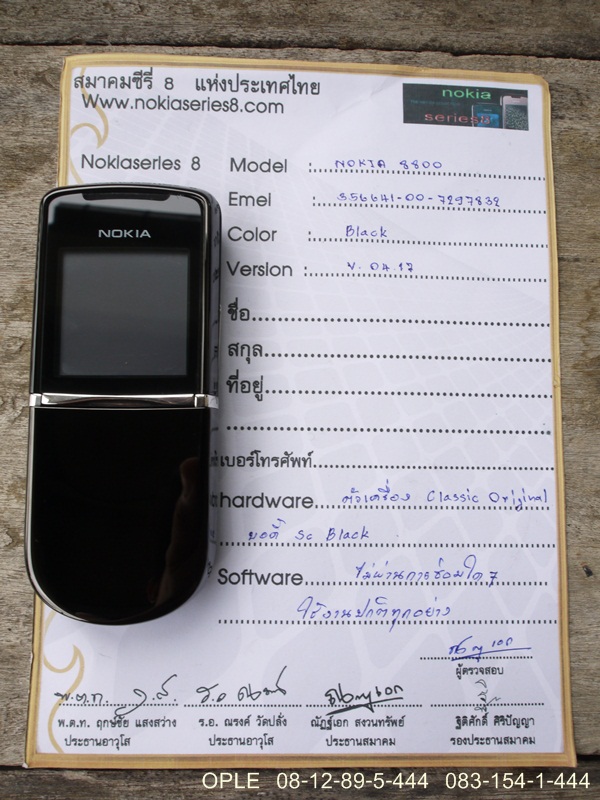 สมาคมซีรี่ 8 แห่งประเทศไทย
Www.nokiaseries8.com
nokia
series8
Nokiaseries 8
Model : NOKIA 8800
Emel : 356641-00-7297832
Color : Black
Version : V. 04.17
NOKIA
ชื่อ
สกุล
ที่อยู่
เบอร์โทรศัพท์
hardware ตัวเครื่อง Classic Original
บอดี้ Sc Black
Software ไม่ผ่านการซ่อมใดๆ
ใช้งานปกติทุกอย่าง
ผู้ตรวจสอบ
พ.ต.ท. ฤกษ์ชัย แสงสว่าง ร.อ. ณรงค์ วัดปลั่ง ณัฏฐ์เอก สงวนทรัพย์ ฐิติศักดิ์ ศิริปัญญา
ประธานอาวุโส ประธานอาวุโส ประธานสมาคม รองประธานสมาคม
OPLE 08-12-89-5-444 083-154-1-444